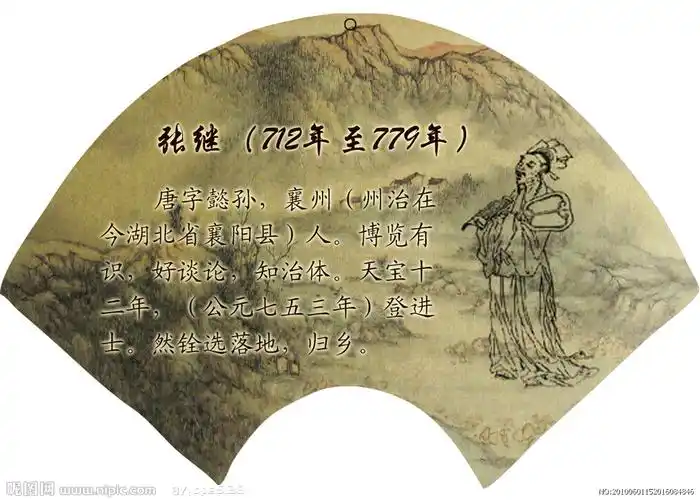 张继（712年至779年）
唐字懿孙，襄州（州治在
今湖北省襄阳县）人。博览有
识，好谈论，知治体。天宝十
二年，（公元七五三年）登进
士。然铨选落地，归乡。
昵图网 www.nipic.com
NO:20100601152016084846